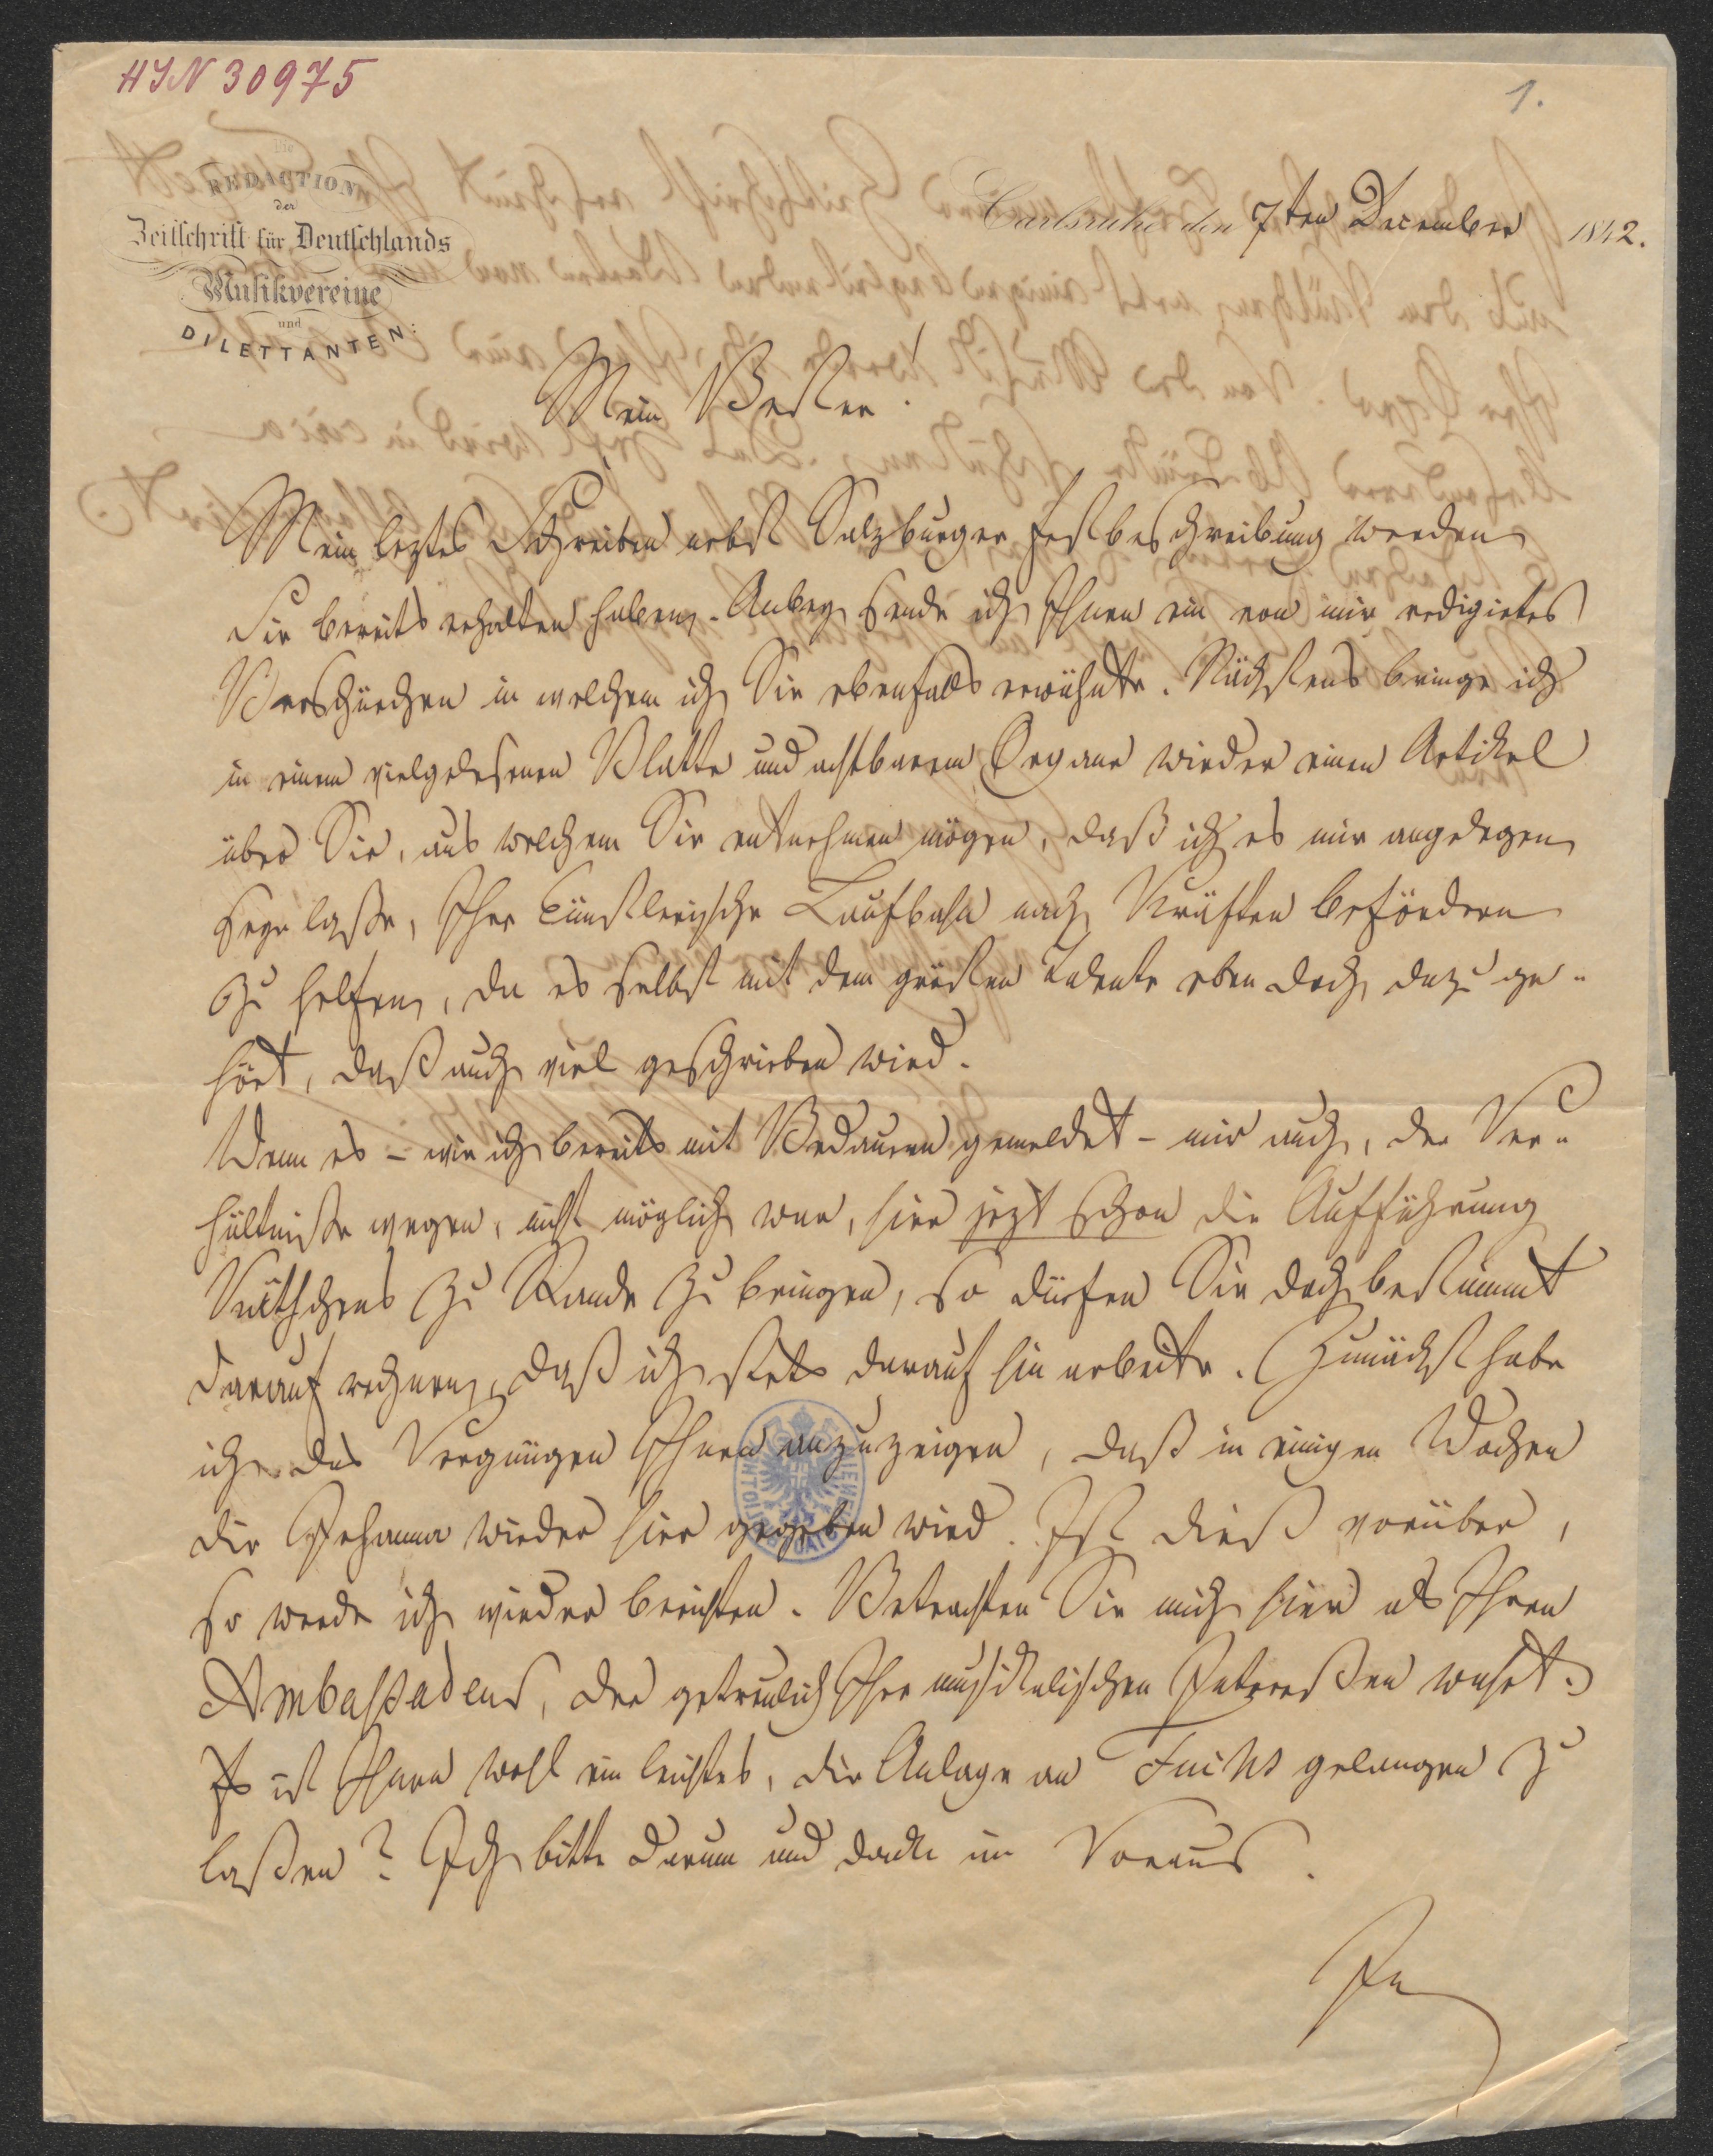 HIN 30975
1.
Die
REDACTION
der
Zeitschrift für Deutschlands
Musikvereine
und
DILETTANTEN.
Carlsruhe den 7ten December 1842.
Mein Bester!
Mein leztes Schreiben nebst Salzburger Festbeschreibung werden
Sie bereits erhalten haben. Anbey sende ich Ihnen ein von mir redigirtes
in welchem ich Sie ebenfalls erwähnte. Nächstens bringe ich
in einem vielgelesenen Blatte und achtbarem Organe wieder einen Artikel
über Sie, aus welchem Sie entnehmen mögen, daß ich es mir angelegen
seyn laße, Ihre künstlerische Laufbahn nach Kräften befördern
zu helfen, da es selbst mit dem größten Talente eben doch dazu ge-
hört, daß auch viel geschrieben wird.
Wenn es – wie ich bereits mit Bedauren gemeldet – mir auch, der Ver-
hältniße wegen, nicht möglich war, hier jezt schon die Aufführung
Käthchens zu Stande zu bringen, so dürfen Sie doch bestimmt
darauf rechnen, daß ich stets darauf hin arbeite. Zunächst habe
ich das Vergnügen Ihnen anzuzeigen, daß in einigen Wochen
die Johanna wieder hier gegeben wird. Ist dieß vorüber,
so werde ich wieder berichten. Betrachten Sie mich hier als Ihren
Ambaßadeur, der getreulich Ihre musikalischen Intereßen wahrt.
Es ist Ihnen wohl ein leichtes, die Anlage an Fuchs gelangen zu
laßen? Ich bitte darum und danke im Voraus.